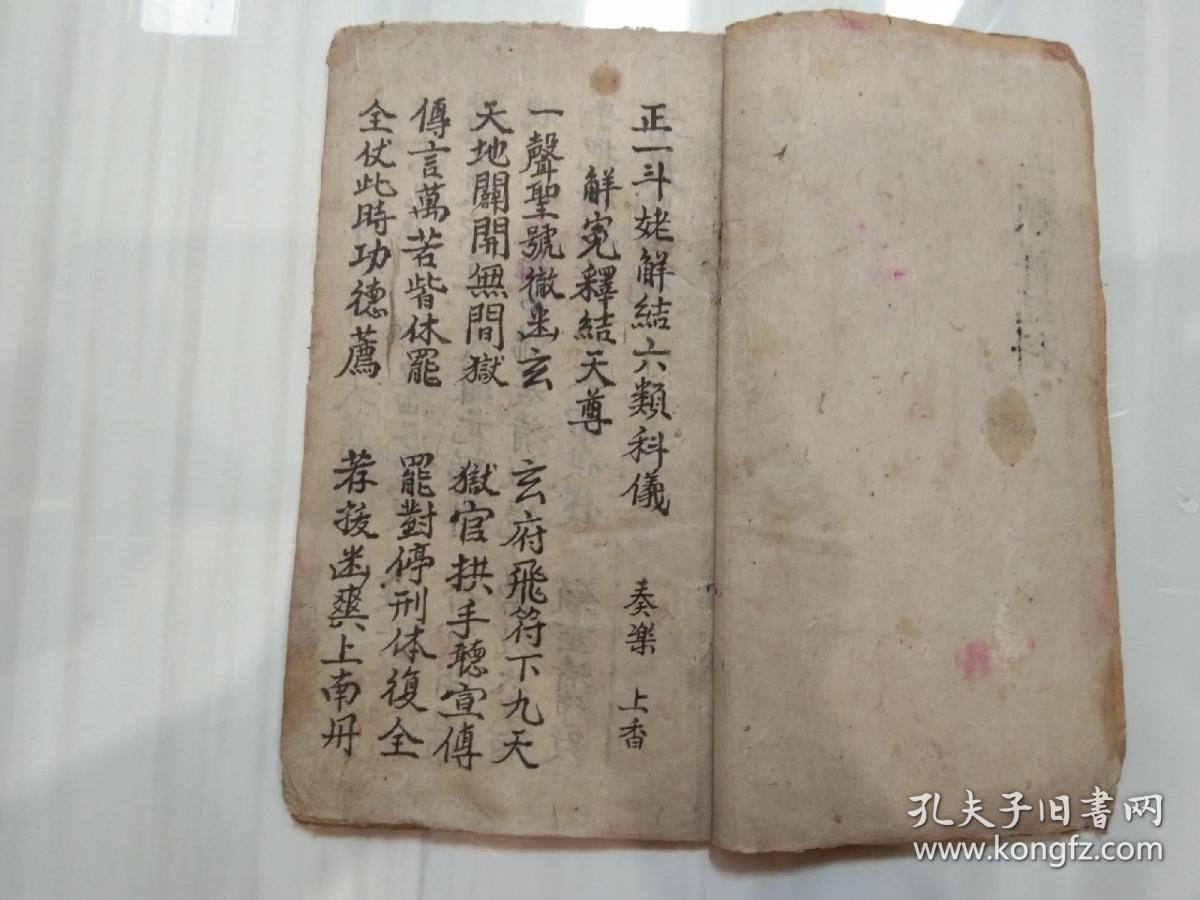 正一斗姥解結六類科儀 奏樂 上香
解寃釋結天尊
一聲聖號徹幽玄 玄府飛符下九天
天地闢開無間獄 獄官拱手聽宣傳
傳言萬苦皆休罷 罷對停刑体復全
全仗此時功德薦 荐拔幽爽上南丹
孔夫子旧书网
www.kongfz.com